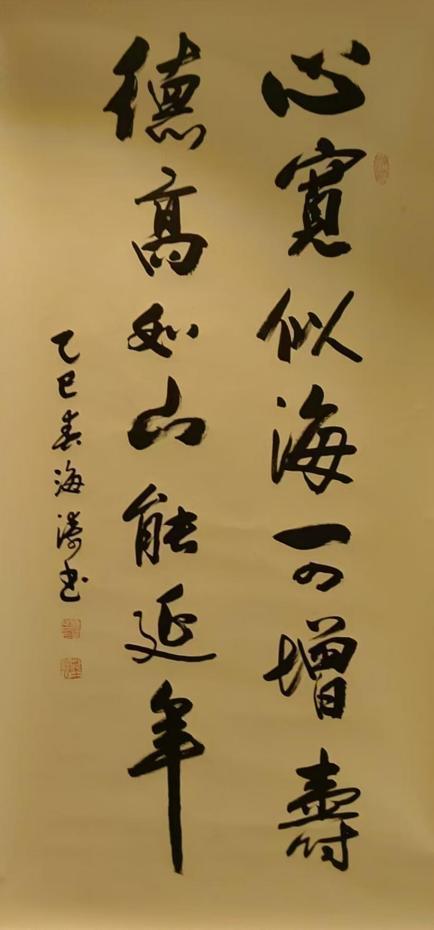 心寬似海可增壽
德高如山能延年
乙巳春海濤書